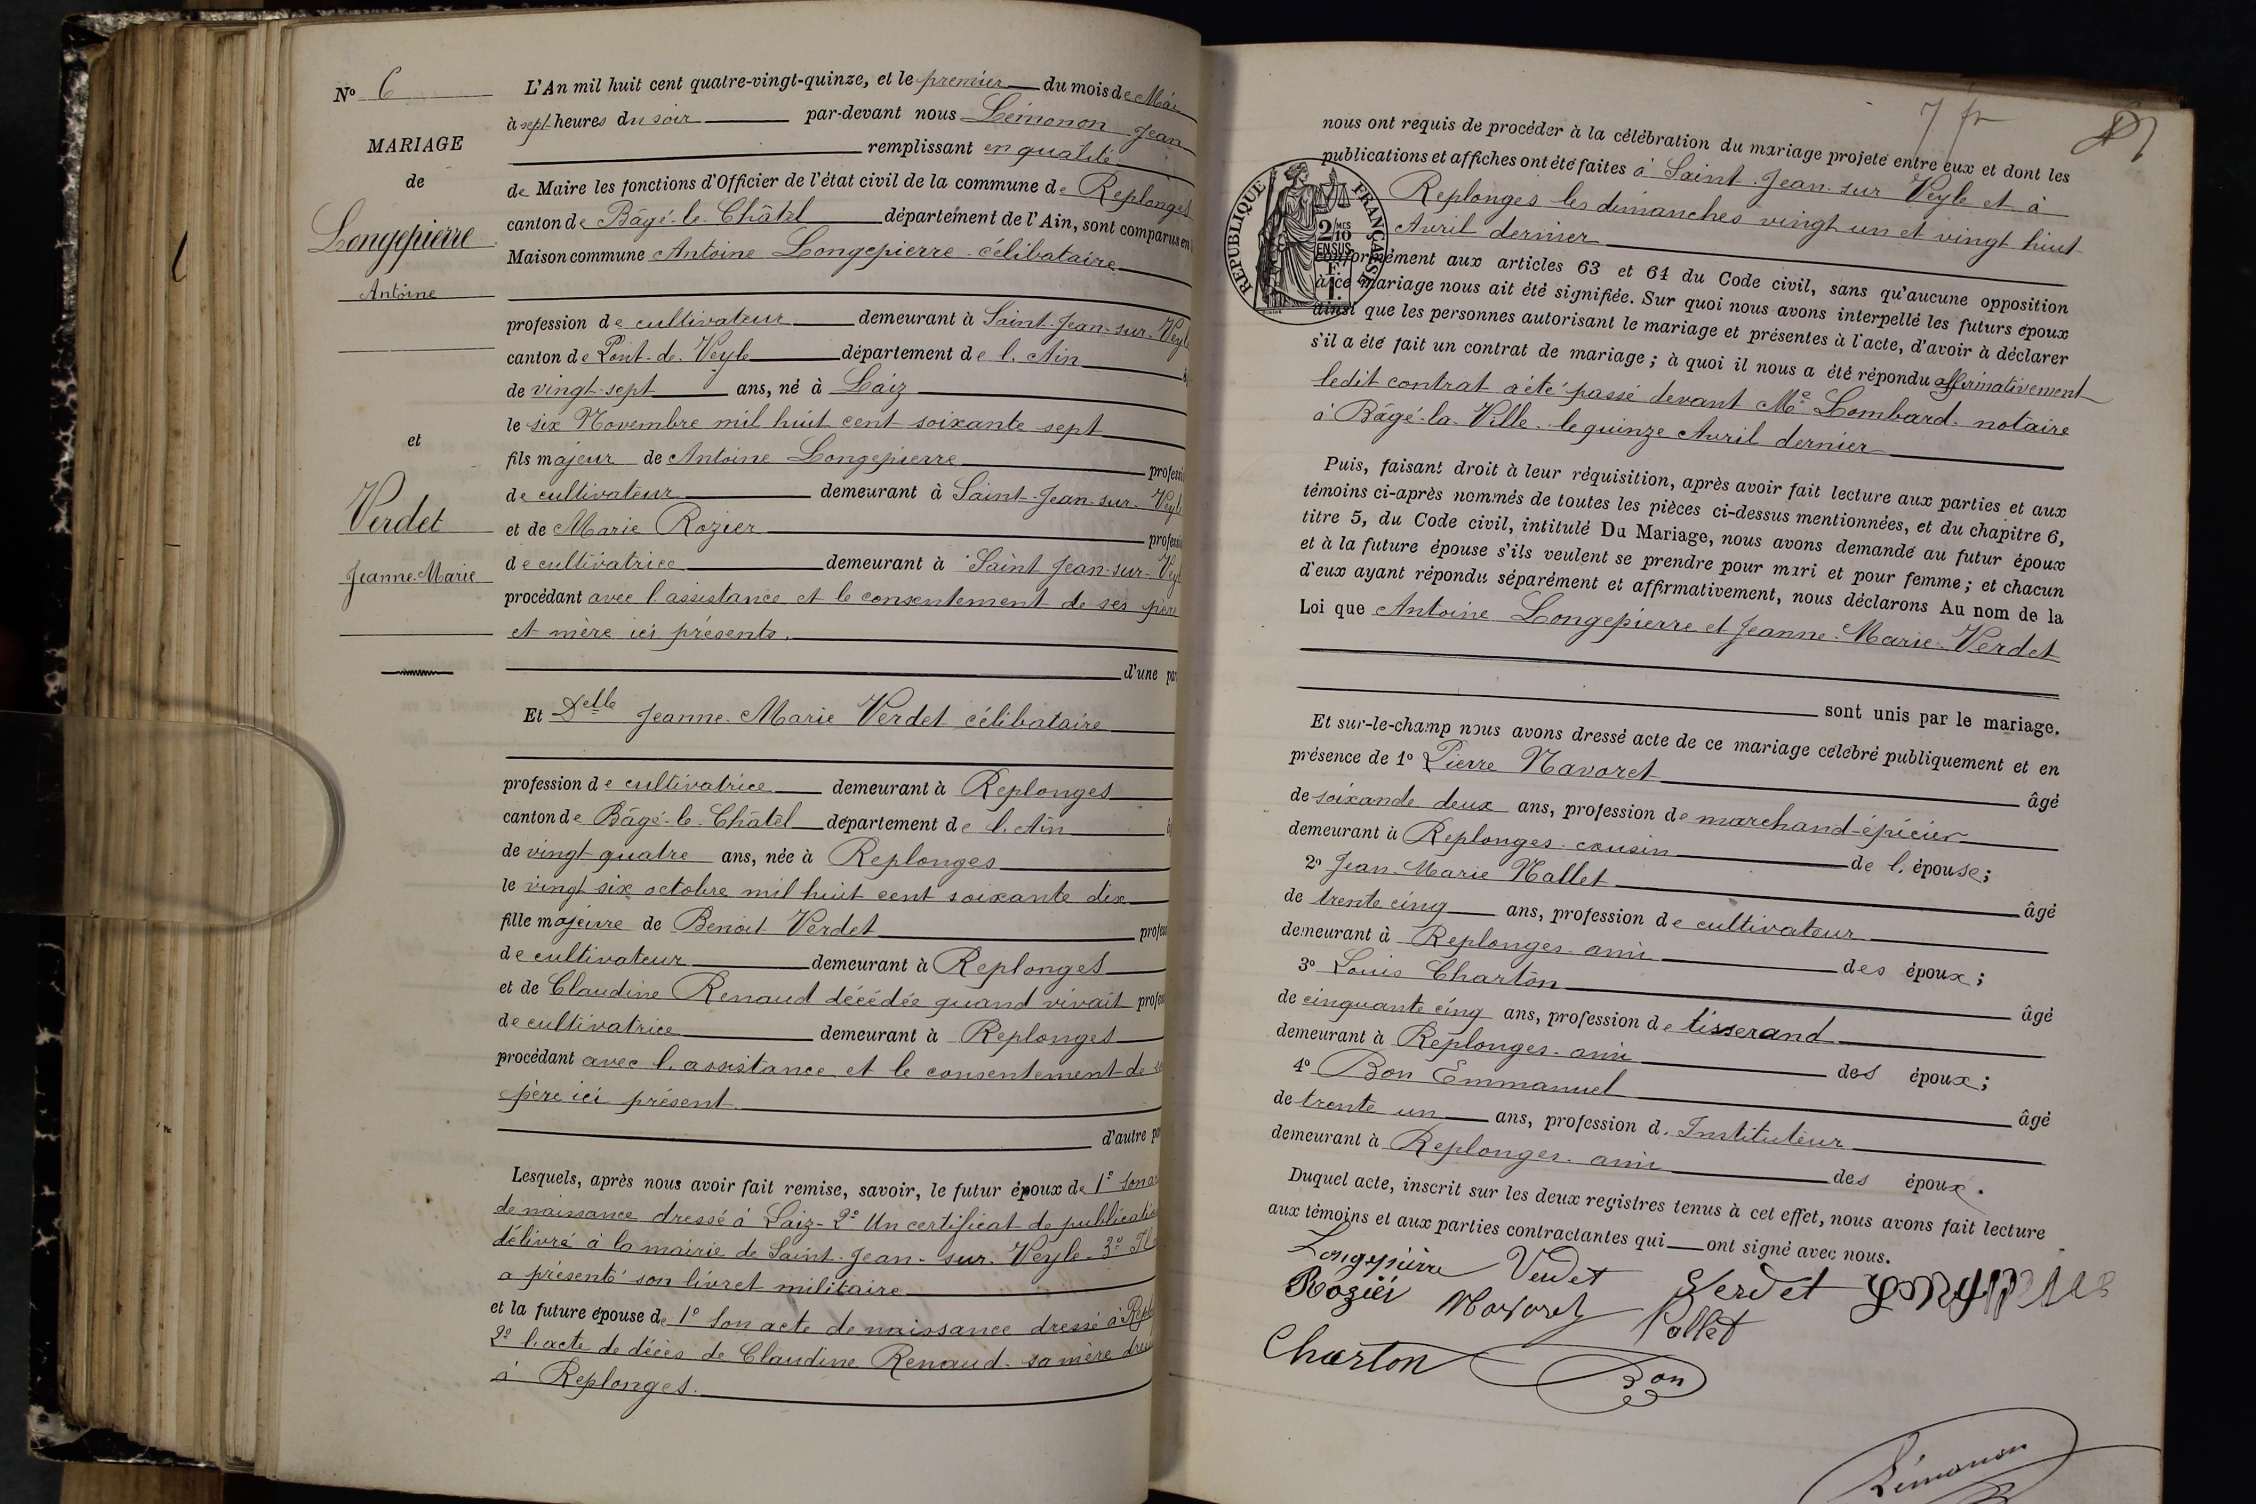 N° 6
MARIAGE
de
Longepierre
Antoine
et
Verdet
Jeanne-Marie
L'An mil huit cent quatre-vingt-quinze, et le premier du mois de Mai
à sept heures du soir par-devant nous Lémonon Jean
remplissant en qualité
de Maire les fonctions d'Officier de l'état civil de la commune de Replonges
canton de Bâgé-le-Châtel département de l'Ain, sont comparus en
Maison commune Antoine Longepierre célibataire
profession de cultivateur demeurant à Saint-Jean-sur-Veyle
canton de Pont-de-Veyle département de l'Ain
de vingt-sept ans, né à Laiz
le six Novembre mil huit cent soixante sept
fils majeur de Antoine Longepierre profess
de cultivateur demeurant à Saint-Jean-sur-Veyl
et de Marie Rozier profess
de cultivatrice demeurant à Saint Jean-sur-Vey
procédant avec l'assistance et le consentement de ses père
et mère ici présents.
d'une par
Et Delle Jeanne-Marie Verdet célibataire
profession de cultivatrice demeurant à Replonges
canton de Bâgé-le-Châtel département de l'Ain
de vingt quatre ans, née à Replonges
le vingt six octobre mil huit cent soixante dix
fille majeure de Benoit Verdet profes
de cultivateur demeurant à Replonges
et de Claudine Renaud décédée quand vivait profes
de cultivatrice demeurant à Replonges
procédant avec l'assistance et le consentement de
père ici présent.
d'autre pa
Lesquels, après nous avoir fait remise, savoir, le futur époux de 1° son
de naissance dressé à Laiz - 2° Un certificat de publicatio
délivré à la mairie de Saint-Jean-sur-Veyle - 3° Il
a présenté son livret militaire
et la future épouse de 1° Son acte de naissance dressé à Repl
2° l'acte de décès de Claudine Renaud sa mère dres
à Replonges.
7 fr
nous ont requis de procéder à la célébration du mariage projeté entre eux et dont les
publications et affiches ont été faites à Saint-Jean-sur Veyle et à
Replonges les dimanches vingt un et vingt huit
Avril dernier
conformément aux articles 63 et 64 du Code civil, sans qu'aucune opposition
à ce mariage nous ait été signifiée. Sur quoi nous avons interpellé les futurs époux
ainsi que les personnes autorisant le mariage et présentes à l'acte, d'avoir à déclarer
s'il a été fait un contrat de mariage ; à quoi il nous a été répondu affirmativement
ledit contrat a été passé devant Me Lombard notaire
à Bâgé-la-Ville le quinze Avril dernier
Puis, faisant droit à leur réquisition, après avoir fait lecture aux parties et aux
témoins ci-après nommés de toutes les pièces ci-dessus mentionnées, et du chapitre 6,
titre 5, du Code civil, intitulé Du Mariage, nous avons demandé au futur époux
et à la future épouse s'ils veulent se prendre pour mari et pour femme ; et chacun
d'eux ayant répondu séparément et affirmativement, nous déclarons Au nom de la
Loi que Antoine Longepierre et Jeanne-Marie Verdet
sont unis par le mariage.
Et sur-le-champ nous avons dressé acte de ce mariage célébré publiquement et en
présence de 1° Pierre Navoret âgé
de soixande deux ans, profession de marchand-épicier
demeurant à Replonges cousin de l'épouse ;
2° Jean-Marie Nallet âgé
de trente cinq ans, profession de cultivateur
demeurant à Replonges ami des époux ;
3° Louis Charton âgé
de cinquante cinq ans, profession de tisserand
demeurant à Replonges ami des époux ;
4° Bon Emmanuel âgé
de trente un ans, profession d'Instituteur
demeurant à Replonges ami des époux.
Duquel acte, inscrit sur les deux registres tenus à cet effet, nous avons fait lecture
aux témoins et aux parties contractantes qui ont signé avec nous.
Longepierre Verdet Verdet
Rozier Navoret Nallet
Charton Bon
Lémonon
RÉPUBLIQUE FRANÇAISE
2/10MES
EN SUS
1 F.